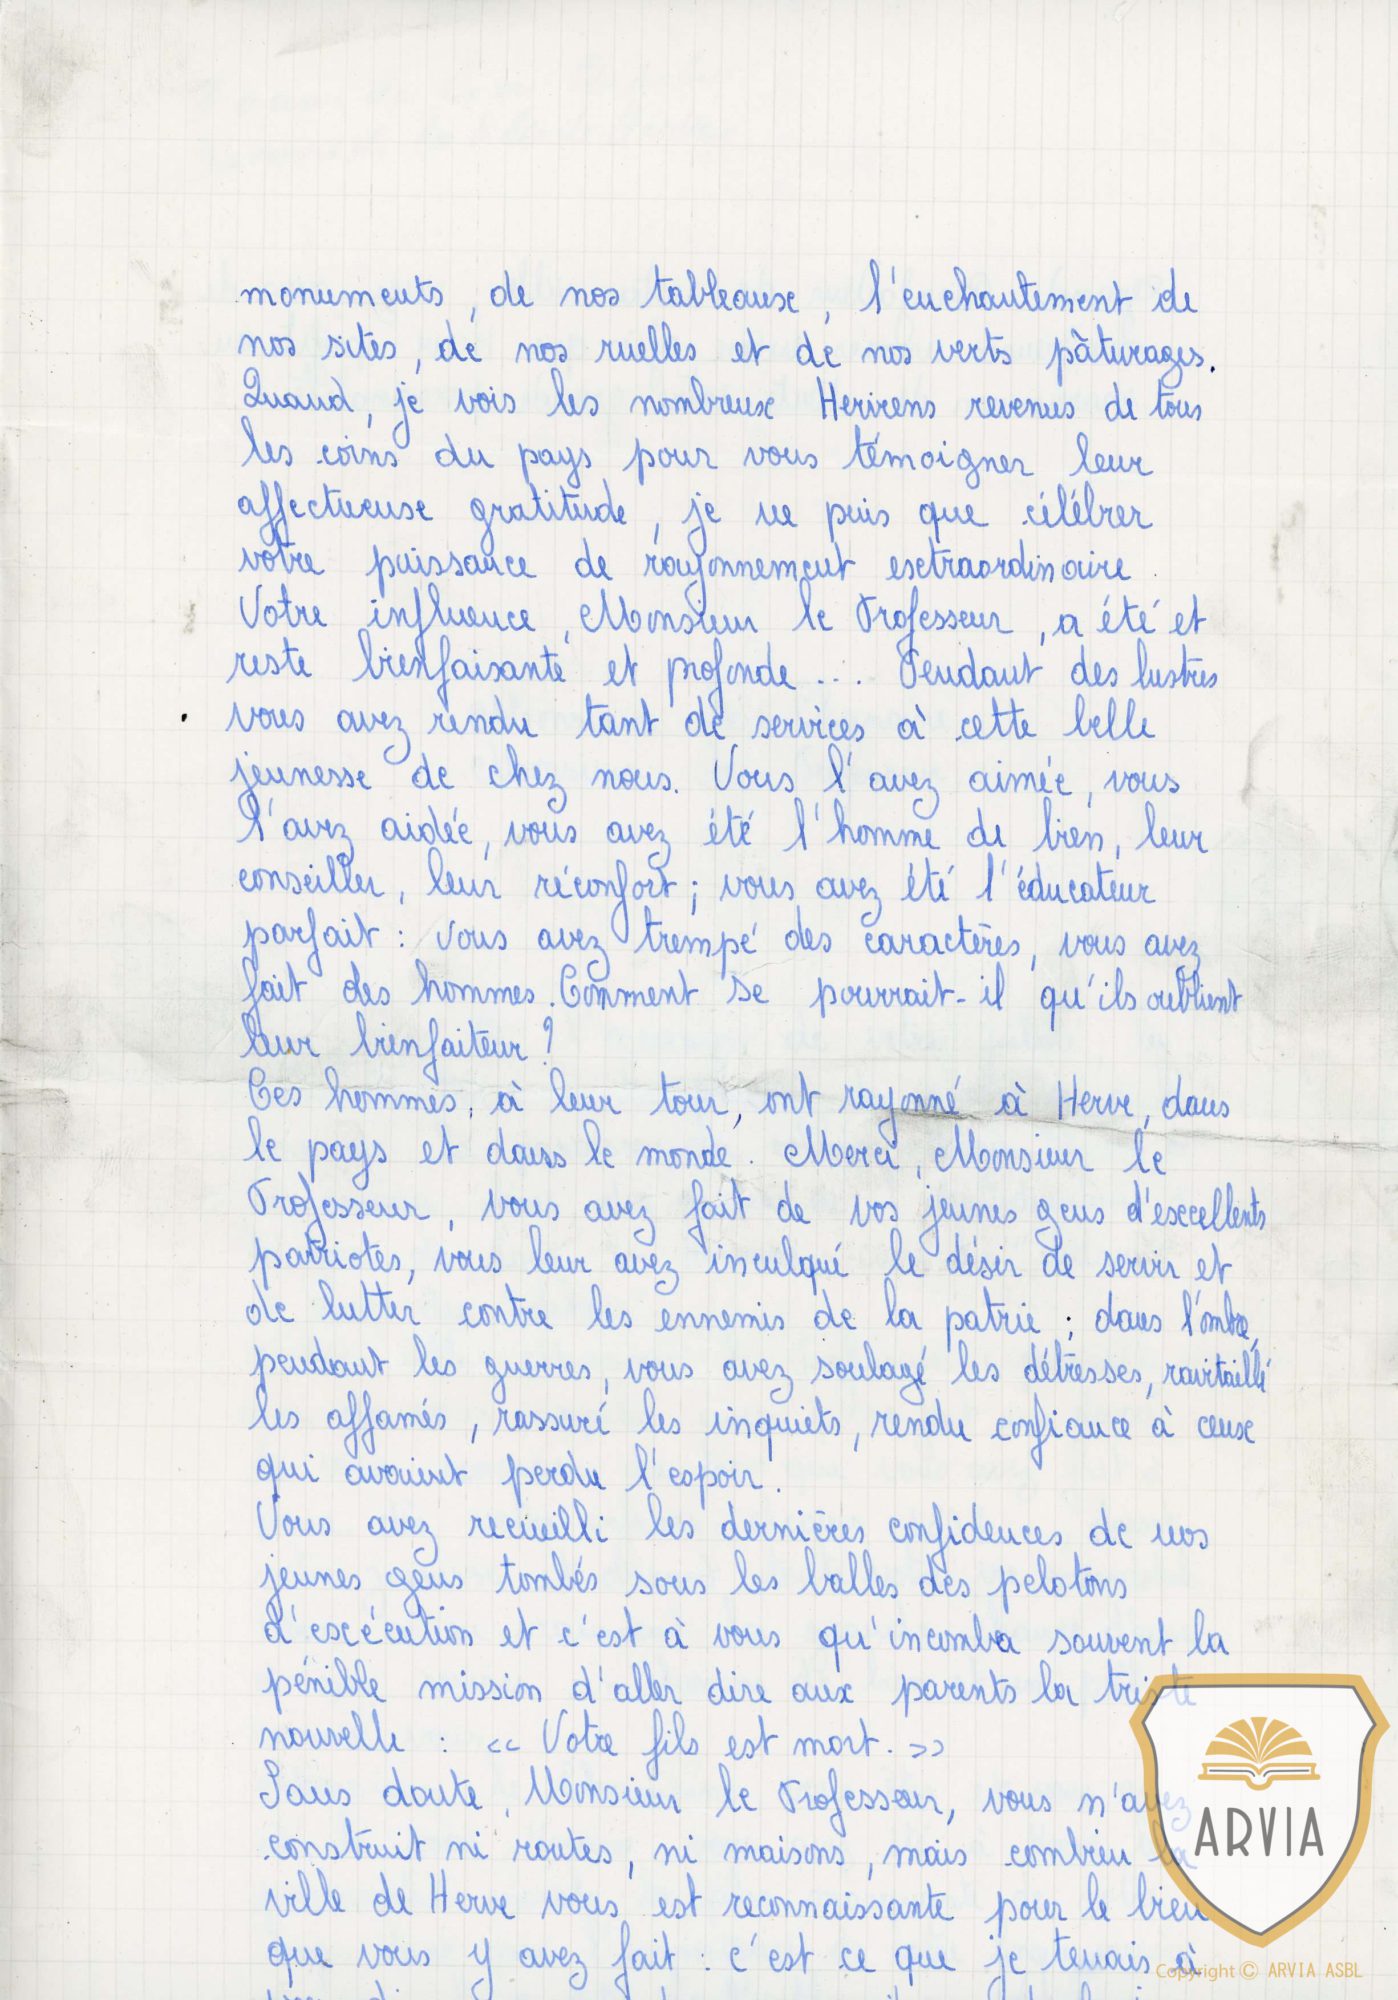 monuments, de nos tableaux, l'enchantement de
nos sites, de nos ruelles et de nos verts pâturages.
Quand, je vois les nombreux Herviens revenus de tous
les coins du pays pour vous témoigner leur
affectueuse gratitude, je ne puis que célébrer
votre puissance de rayonnement extraordinaire.
Votre influence, Monsieur le Professeur, a été et
reste bienfaisante et profonde ... Pendant des lustres
vous avez rendu tant de services à cette belle
jeunesse de chez nous. Vous l'avez aimée, vous
l'avez aidée, vous avez été l'homme de bien, leur
conseiller, leur réconfort ; vous avez été l'éducateur
parfait : vous avez trempé des caractères, vous avez
fait des hommes. Comment se pourrait-il qu'ils oublient
leur bienfaiteur ?
Ces hommes, à leur tour, ont rayonné à Herve, dans
le pays et dans le monde. Merci, Monsieur le
Professeur, vous avez fait de vos jeunes gens d'excellents
patriotes, vous leur avez inculqué le désir de servir et
de lutter contre les ennemis de la patrie ; dans l'ombre,
pendant les guerres, vous avez soulagé les détresses, ravitaillé
les affamés, rassuré les inquiets, rendu confiance à ceux
qui avaient perdu l'espoir.
Vous avez recueilli les dernières confidences de nos
jeunes gens tombés sous les balles des pelotons
d'exécution et c'est à vous qu'incomba souvent la
pénible mission d'aller dire aux parents la triste
nouvelle : << Votre fils est mort. >>
Sans doute, Monsieur le Professeur, vous n'avez
construit ni routes, ni maisons, mais combien la
ville de Herve vous est reconnaissante pour le bien
que vous y avez fait : c'est ce que je tenais à
ARVIA
Copyright © ARVIA ASBL